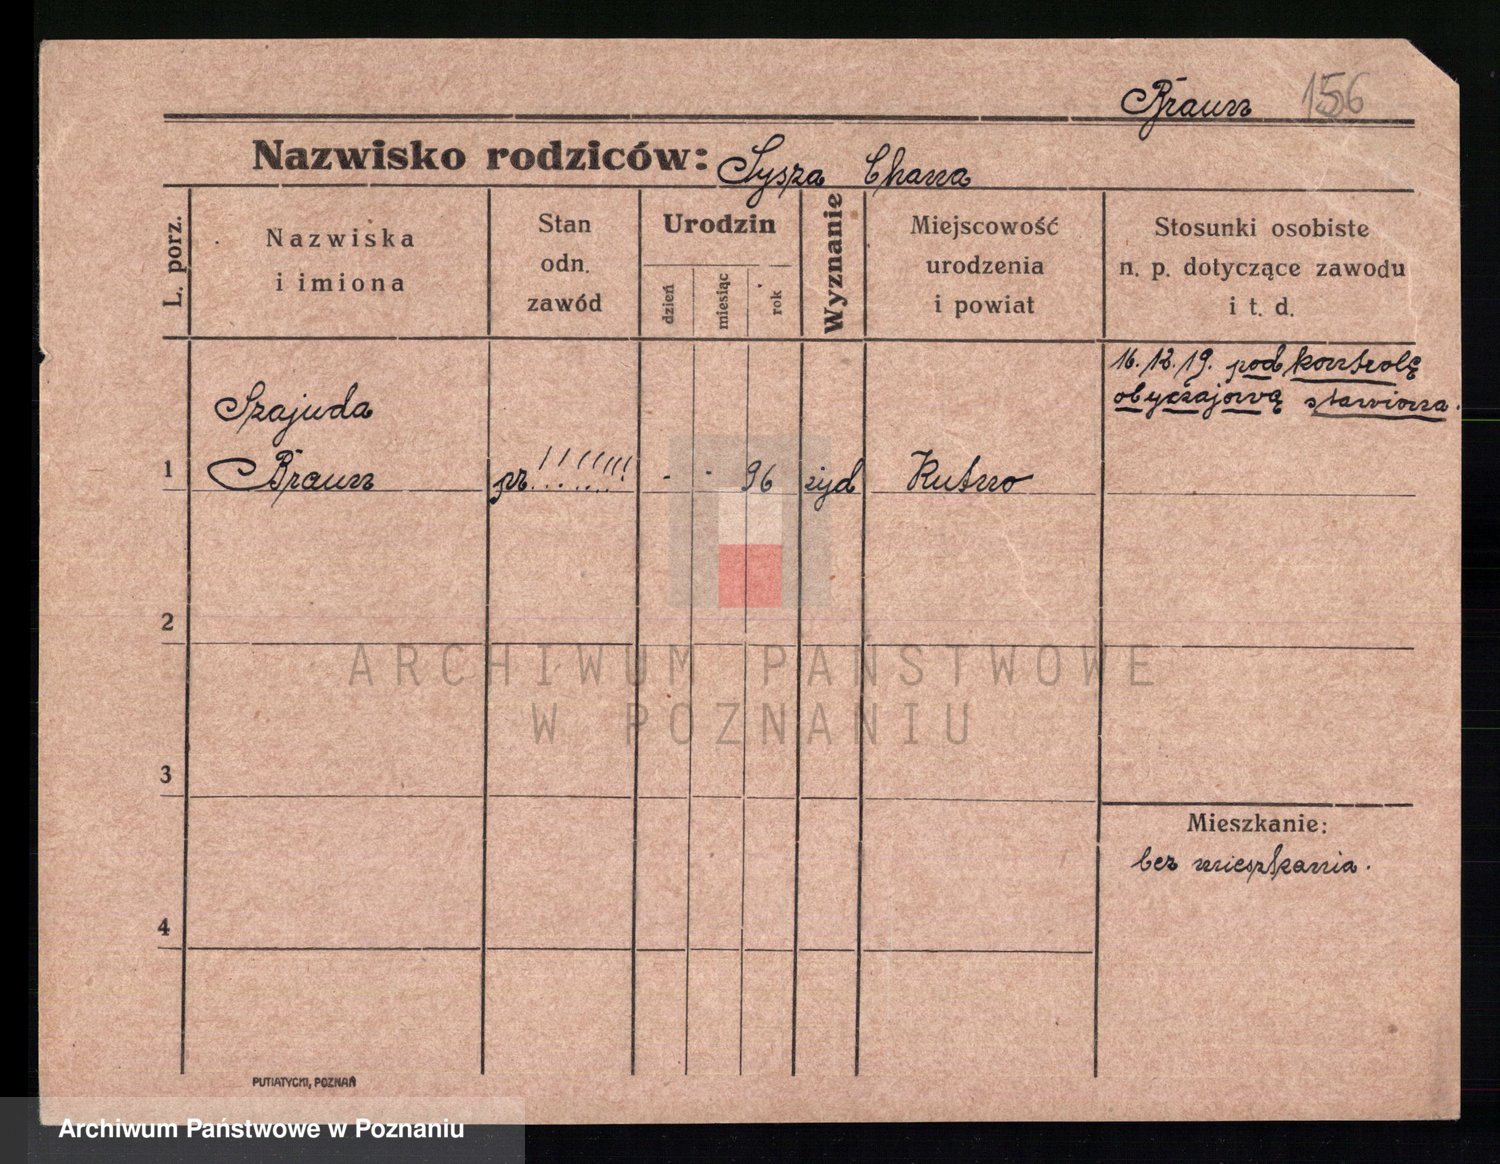 Braun 156
Nazwisko rodziców: Sysza Chana
L. porz.
Nazwiska
i imiona
Stan
odn.
zawód
Urodzin
dzień
miesiąc
rok
Wyznanie
Miejscowość
urodzenia
i powiat
Stosunki osobiste
n. p. dotyczące zawodu
i t. d.
16.12.19. pod kontrolę
obyczajową stawiona.
Szajuda
1 Braun pr. !!!!!!! - - 96 żyd Kutno
2
ARCHIWUM PAŃSTWOWE
W POZNANIU
3
Mieszkanie:
bez mieszkania.
4
PUTIATYCKI, POZNAŃ
Archiwum Państwowe w Poznaniu